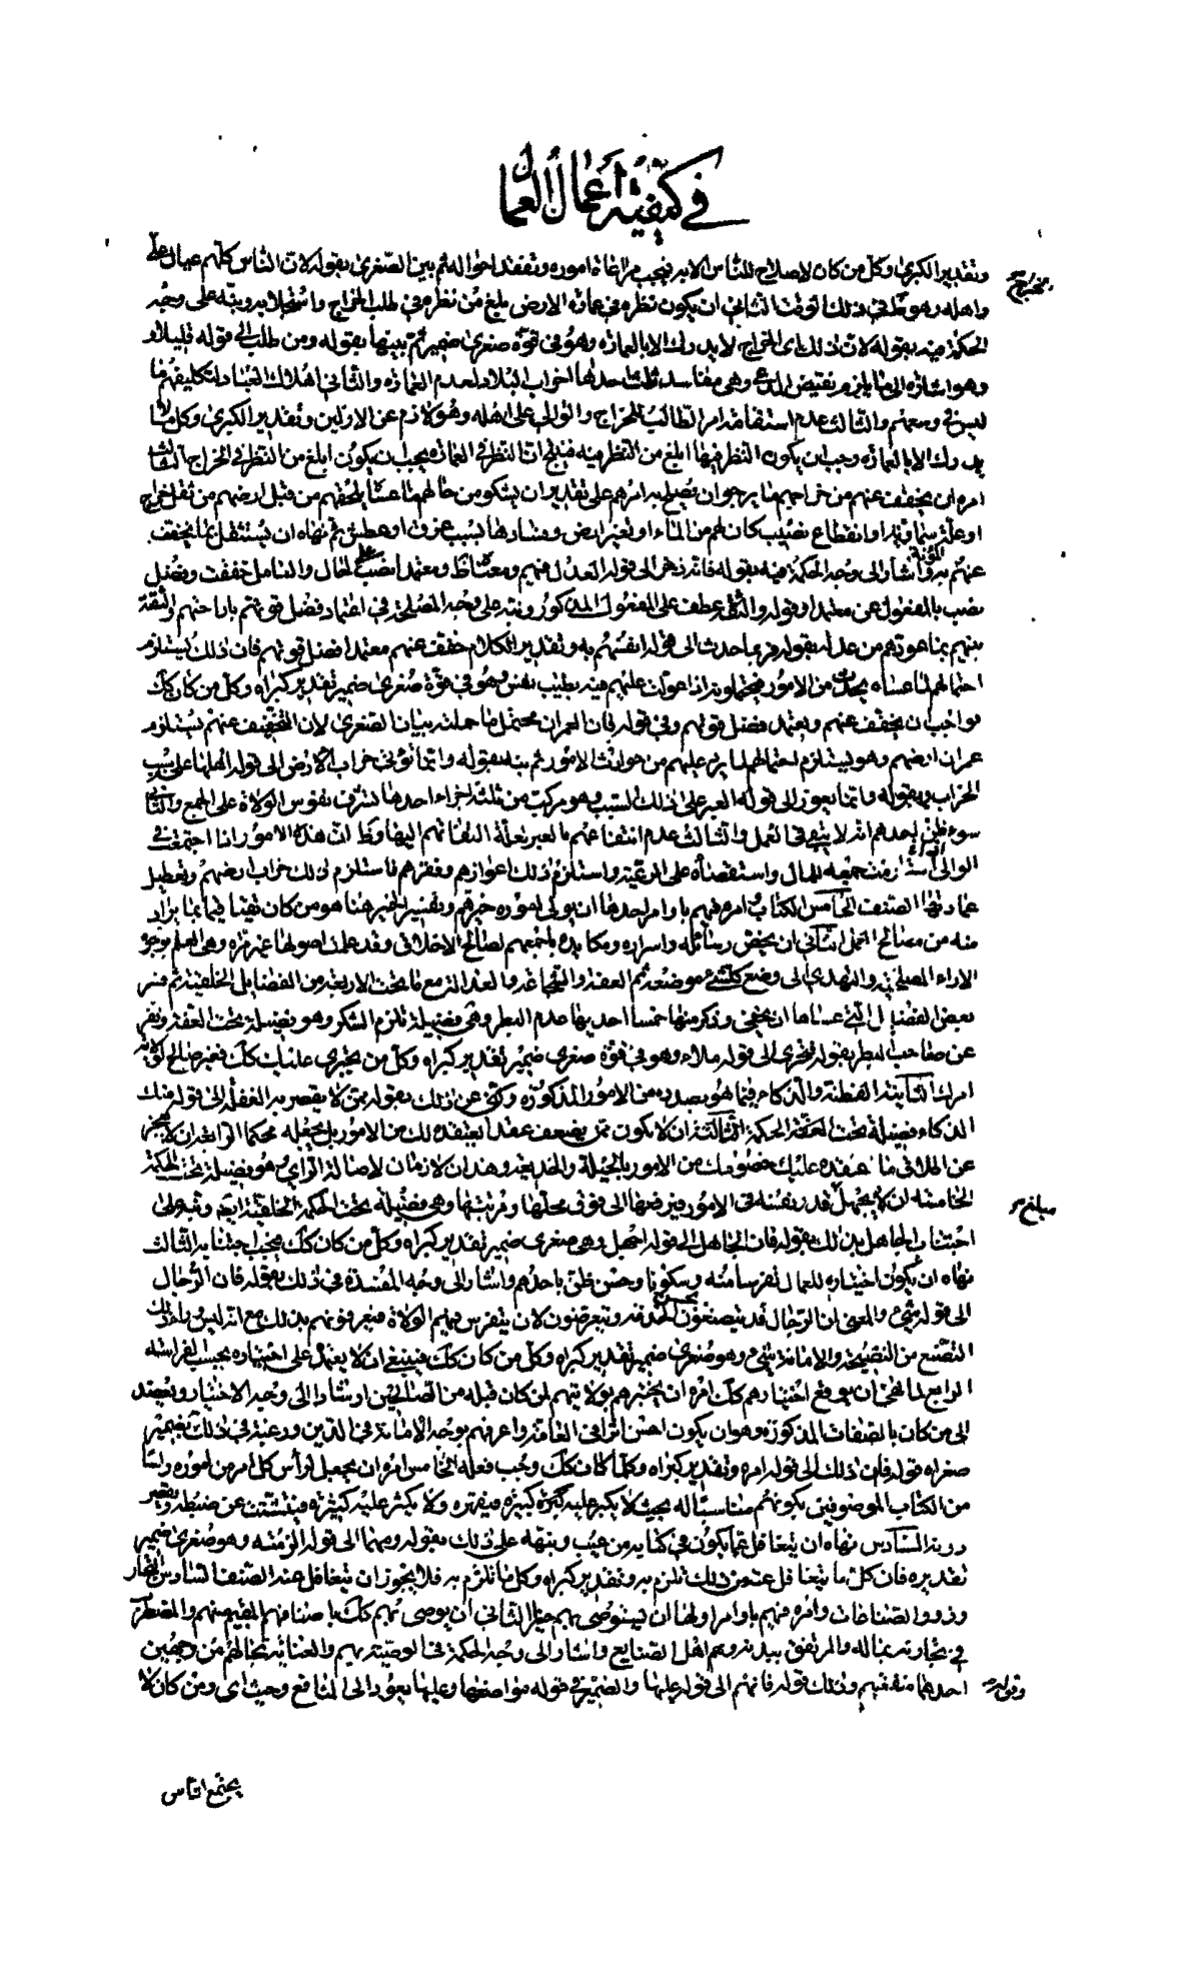 في كيفية أعمال العمال
وتقدير الكبرى وكل من كان لا صلاح للناس الا به فيجب مراعاة اموره وتفقد احواله ثم بين الصغرى بقوله لان الناس كلهم عيال على
الخراج
واهله وهو في ذلك الوقت الثاني ان يكون نظره في عمارة الارض ابلغ من نظره في طلب الخراج واستجلابه ونبه على وجه
الحكمة فيه بقوله لان ذلك اى الخراج لا يدرك الا بالعمارة وهو في قوة صغرى ضمير ثم بينها بقوله ومن طلب الى قوله قليلا و
وهو اشارة الى ما يلزم نقيض المدعى وهى مفاسد ثلث احدها اخراب البلاد لعدم العمارة والثاني اهلاك العباد لتكليفهم ما
ليس في وسعهم والثالث عدم استقامة امر الطالب للخراج والوالى على اهله وهو لازم عن الاولين وتقدير الكبرى وكل ما لا
يدرك الا بالعمارة وجب ان يكون النظر فيها ابلغ من النظر فيه فينتج ان النظر في العمارة يجب ان يكون ابلغ من النظر في الخراج الثالث
امره ان يخفف عنهم من خراجهم ما يرجو ان يصلح به امرهم على تقدير ان يشكو من حالهم ما عساه يلحقهم من قبل ارضهم من ثقل خراج
او علة سماوية او انقطاع نصيب كان لهم من الماء او تغير ارض وفسادها بسبب غرق او عطش ثم نهاه ان يستثقل بما يخفف
عنهم به المؤنة واشار الى وجه الحكمة فيه بقوله فانه ذخر الى قوله العدل فيهم ومعتمدا نصب على الحال والعامل خففت وفضل
نصب بالمفعول عن معتمدا وقوله والثقة عطف على المفعول المذكور ونبه على وجه المصلحة في اعتماد فضل قوتهم باراحتهم والثقة
منهم بما عودهم من عدله بقوله فربما حدث الى قوله انفسهم به وتقدير الكلام خفف عنهم معتمدا فضل قوتهم فان ذلك يستلزم
احتمالهم لما عساه يحدث من الامور فيحتملونه اذا عولت عليهم فيه بطيب نفس وهو في قوة صغرى ضمير تقدير كبراه وكل من كان كك
فواجب ان يخفف عنهم ويعتمد فضل قوتهم وفي قوله فان العمران محتمل ما حملته بيان الصغرى لان التخفيف عنهم يستلزم
عمران ارضهم وهو يستلزم احتمالهم لما يرد عليهم من حوادث الامور ثم نبه بقوله وانما يؤتى خراب الارض الى قوله اهلها على سبب
الخراب وبقوله وانما يعوز الى قوله العبر على ذلك السبب وهو مركب من ثلثة اجزاء احدها اشراف نفوس الولاة على الجمع والثاني
سوء ظن احدهم انه لا يبقى في العمل والثالث عدم انتفاعهم بالعبر لقلة التفاتهم اليها وظ ان هذه الامور اذا اجتمعت في
الوالى استلزمت جمعه للمال واستقصاءه على الرعية واستلزم ذلك اعوازهم وفقرهم فاستلزم ذلك خراب ارضهم وتعطيل
عمارتها الصنف الخامس الكتاب امره فيهم باوامر احدها ان يولى اموره خيرهم وتفسير الخير هنا هو من كان تقيا قيما بما يراد
منه من مصالح العمل الثاني ان يخص رسائله واسراره ومكايده باجمعهم لصالح الاخلاق وقد علمت اصولها غير مرة وهى العلم بوجوه
الاراء المصلحية والتهدى الى وضع كل شئ موضعه ثم العفة والشجاعة والعدالة مع ما تحت الاربعة من الفضايل الخلقية ثم فسر
بعض الفضايل التى عساها ان يخفى وذكر منها خمسا احديها عدم البطر وهى فضيلة تلزم الشكر وهو فضيلة تحت العفة ونفر
عن صاحب البطر بقوله فيجترى الى قوله ملاء وهو في قوة صغرى ضمير تقدير كبراه وكل من يجترى عليك كك فغير صالح لولاية
امرك الثانية الفطنة والذكاء فيما هو بصدده من الامور المذكورة وكنى عن ذلك بقوله ممن لا يقصر به الغفلة الى قوله منك
الذكاء فضيلة تحت الحكمة الثالثة ان لا يكون ممن يضعف عقدا يعتقده لك من الامور بل يجعله محكما الرابعة ان لا يعجز
عن اطلاق ما عقده عليك خصومك من الامور بالحيلة والخديعة وهذان لازمان لاصالة الراى وهو فضيلة تحت الحكمة
الخامسة ان لا يجهل قدر نفسه في الامور فيرفعها الى فوق محلها ومرتبتها وهى فضيلة تحت الحكمة الخلقية ايضا ونبه على
مبلغ
اجتناب الجاهل بذلك بقوله فان الجاهل الى قوله اجهل وهى صغرى ضمير تقدير كبراه وكل من كان كك فيجب اجتنابه الثالث
نهاه ان يكون اختياره للعمال تفرسا منه وسكونا وحسن ظن باحدهم واشار الى وجه المفسدة في ذلك بقوله فان الرجال
الى قوله شئ والمعنى ان الرجال قد يتصنعون بحسن الخدمة ويتعرضون لان يتفرس فيهم الولاة فيعرفونهم بذلك مع انه ليس وراء ذلك
التصنع من النصيحة والامانة شئ وهو صغرى ضمير تقدير كبراه وكل من كان كك فينبغى ان لا يعتمد على اختياره بحسب الفراسة
الرابع لما نهى ان يوقع اختيارهم كك امره ان يختبرهم بولايتهم لمن كان قبله من الصالحين ارشادا الى وجه الاختيار ويقصد
الى من كان بالصفات المذكورة وهو ان يكون احسن اثرا في العامة واعرفهم بوجه الامانة في الدين ورغبه في ذلك بضمير
صغراه قوله فان ذلك الى قوله امره وتقدير كبراه وكلما كان كك وجب فعله الخامس امره ان يجعل لرأس كل امر من اموره رأسا
من الكتاب الموصوفين بكونهم مناسبا له بحيث لا يكبر عليه كبيره فيقهره ولا يكثر عليه كثيره فيتشتت عن ضبطه ويقصر
دونه السادس نهاه ان يتغافل عما يكون في كتابه من عيب ونبهه على ذلك بقوله ومهما الى قوله الزمته وهو صغرى ضمير
تقديره فان كل ما يتغافل عنه من ذلك تلزم به وتقدير كبراه وكل ما تلزم به فلا يجوز ان يتغافل عنه الصنف السادس التجار
وذووا الصناعات وامره فيهم باوامر اولها ان يستوصى بهم خيرا الثاني ان يوصى بهم كك باصنافهم المقيم منهم والمضطرب
في تجارته بماله والمرتفق ببدنه وهم اهل الصنايع واشار الى وجه الحكمة في الوصية بهم والعناية بحالهم من وجهين
احدهما منفعتهم وذلك قوله فانهم الى قوله عليها والضمير في قوله مواضعها وعليها يعود الى المنافع وحيث اى ومن كان لا
وقوله
يجتمع الناس